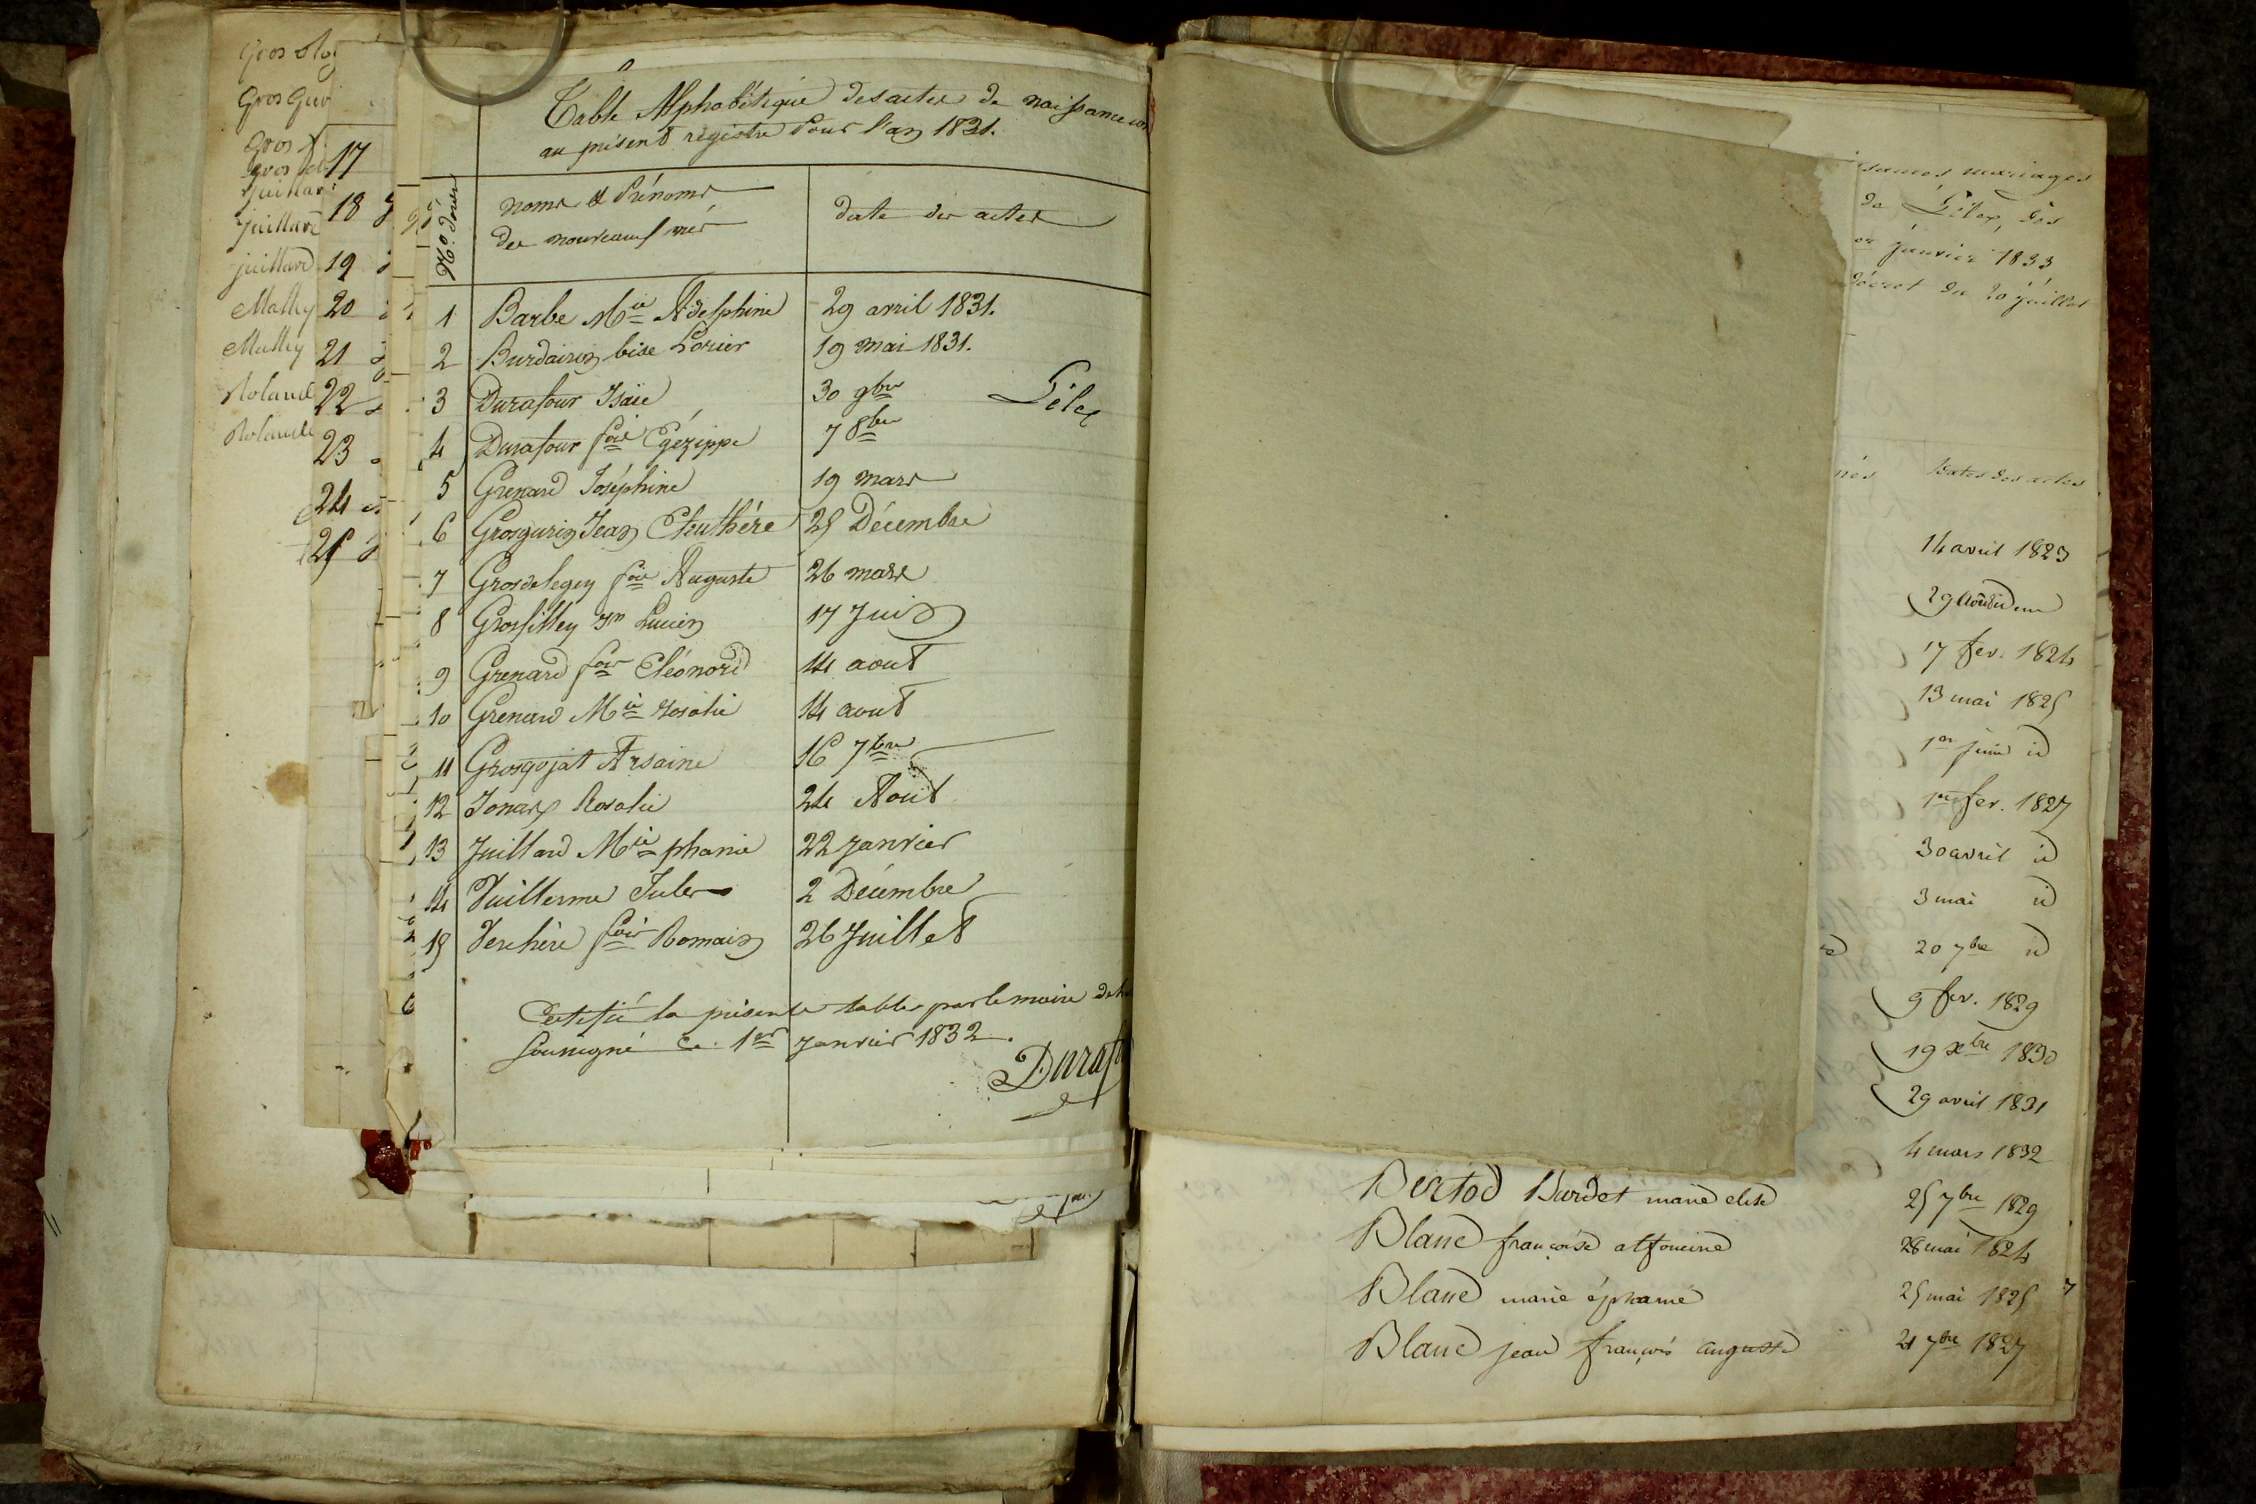 Table Alphabétique des actes de naissance
au présent registre pour l'an 1831.
Nos d'ordre
noms & Prénoms
des nouveaux nés
date des actes
1 Barbe Mie Adelphine 29 avril 1831.
2 19 mai 1831.
3 Durafour Isaïe 30 9bre
Lélex
4 Durafour fois Egézippe 7 8bre
5 Grenard Joséphine 19 mars
6 Grosgurin Jean Eleuthère 25 Décembre
7 Grosdelegey fois Auguste 26 mars
8 Grosfilley Jn Lucien 17 Juin
9 Grenard fois Eléonord 14 aout
10 Grenard Mie rosalie 14 aout
11 Grosgojat Arsaine 16 7bre
12 Jonax Rosalie 24 Aout
13 Juillard Mie phanie 22 Janvier
14 Vuillerme Jules 2 Décembre
15 Verchère fois Romain 26 Juillet
Certifié la présente table par le maire
soussigné ce 1er Janvier 1832.
Durafo
Gros
Gros Guri
Gros
juillard
juillard
Mathy
Mathy
Roland
Rolande
17
18
19
20
21
22
23
24
25
mariages
de Lélex, dès
janvier 1833
décret du 20 juillet
nés Dates des actes
14 avril 1823
29 Août
17 fev. 1824
13 mai 1825
1er juin id
1er fev. 1827
30 avril id
3 mai id
20 7bre id
9 fev. 1829
19 xbre 1830
29 avril 1831
4 mars 1832
Bertod Burdet marie elise 25 7bre 1829
Blanc françoise alfonsine 28 mai 1824
Blanc marie éphanie 25 mai 1825
Blanc jean françois auguste 21 7bre 1827